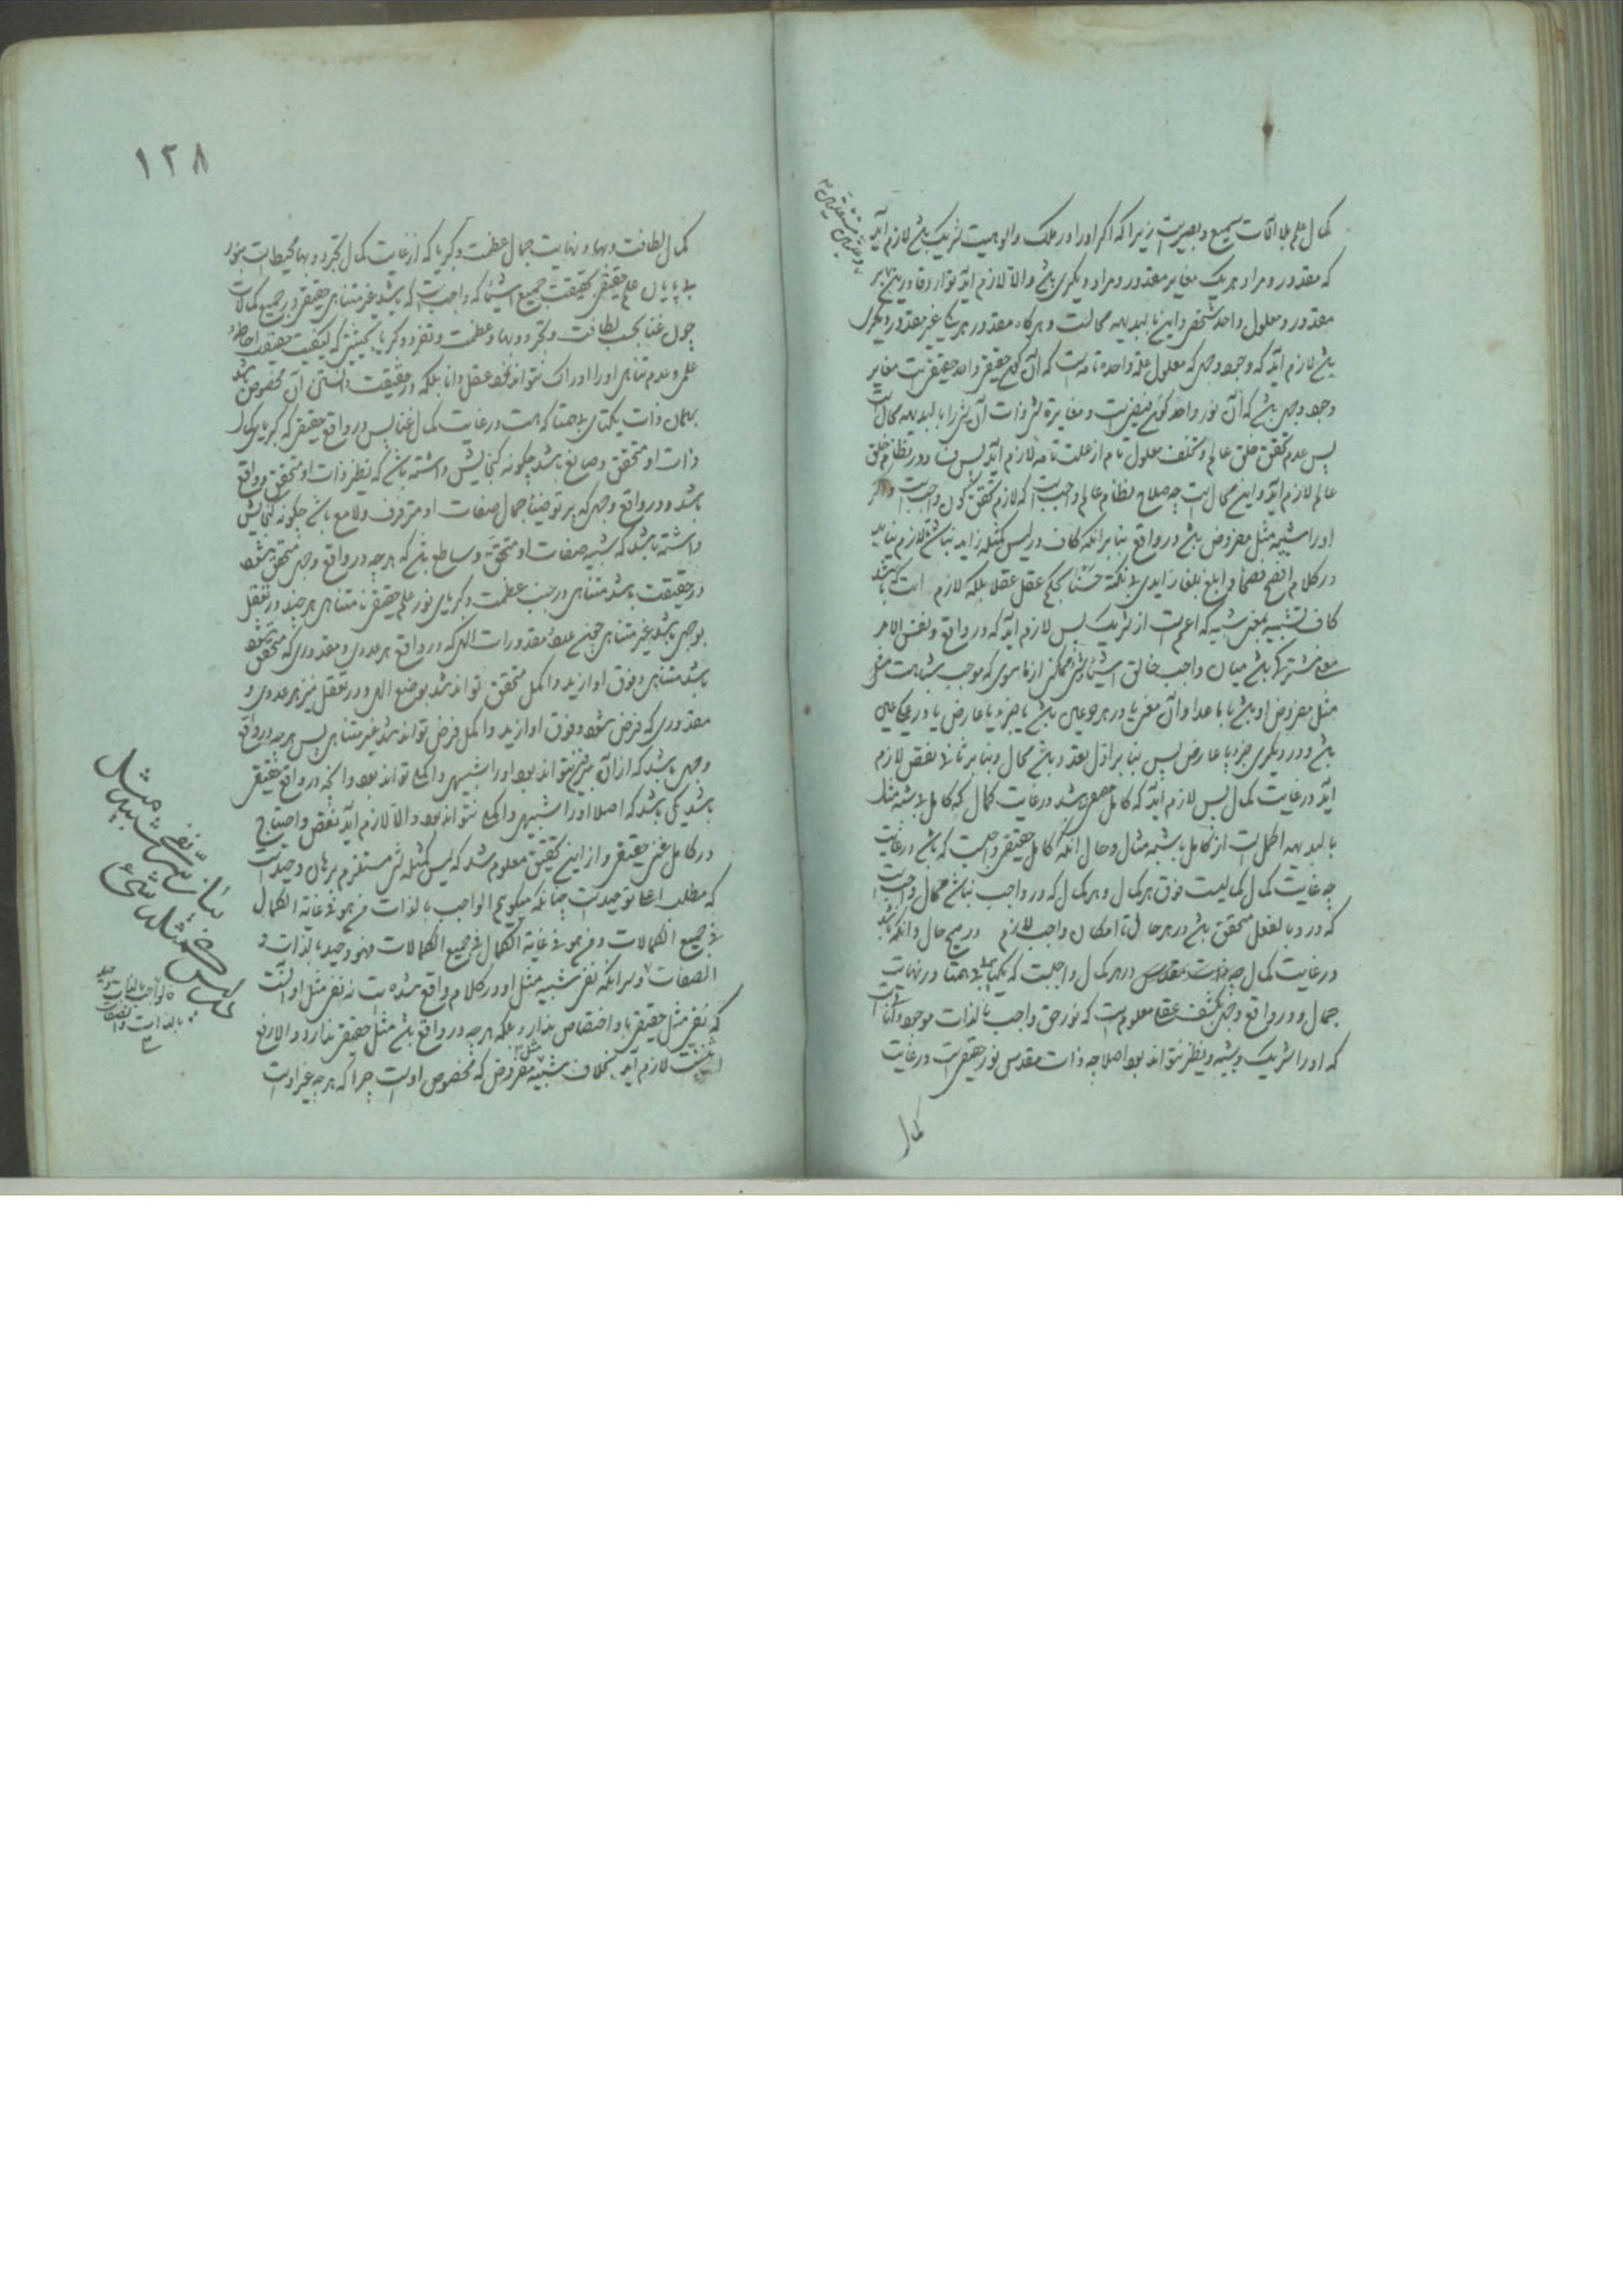 کمال علم بلا آفات سمیع و بصیرست زیرا که اگر او را در ملک و الوهیت شریک باشد لازم آید
که مقدور و مراد هر یک مغایر مقدور و مراد دیگری باشد و الا لازم آید توارد قادرین بر
مقدور و معلول واحد شخصی و این بالبدیهه محالست و هرگاه مقدور هر یک غیر مقدور دیگری
باشد لازم آید که وجود وجهی که معلول علة واحده تامه است که آن حقیقی واحد حقیقی است مغایر
وجود وجهی باشد که آن نور واحد و مغایرة شیء و ذات آن شیء را بالبدیهه محال است
پس عدم تحقق خلق عالم و تخلف معلول تام از علت تامه لازم آید پس فساد در نظام خلق
عالم لازم آید و این محال است چه صلاح نظام عالم واجب است که لازم تحقق کون واجب است و اگر
او را شبیه مثل مفروض باشد در واقع بنا بر آنکه کاف در لیس کمثله زاید نباشد لازم نیاید
در کلام افصح فصحا و ابلغ بلغا زایدی بلا نکته حسنا بحکم عقل عقلا بلکه لازم است که باشد
کاف تشبیه بمعنی شبیه که اعم است از شریک پس لازم آید که در واقع و نفس الامر
معنی مشترکی باشد میان واجب خالق اشیا و شیء ممکن از ماسوی که موجب مشابهت مثل
مثل مفروض او باشد با ماعدا و آن معنی یا در هر دو عین باشد یا جزء یا عارض یا در یکی عین
باشد و در دیگری جزء یا عارض پس بنا بر اول تعدد باشد محال و بنا بر ثانی نقص لازم
آید در غایت کمال پس لازم آید که کامل باشد در غایت کمال که کامل بلا شبه مثل
بالبدیهه اکمل است از کامل با شبه مثال و حال آنکه کامل حقیقی واجبست که باشد در غایت
چه غایت کمال کمالیست فوق هر کمال و هر کمال که در واجب نباشد محال واجب است
که در او بالفعل متحقق باشد در هر حال تا امکان واجب لازم در هیچ حال و آنکه باشد
در غایت کمال چه ذات مقدس در هر کمال واجبست که یکتای بی همتا در نهایت
جمال و در واقع وجهی بکشف عقلا معلوم است که نور حق واجب بالذات موجود آنست
که او را شریک و شبیه و نظیر نتواند بود اصلا چه ذات مقدس نور حقیقی است در غایت
کمال
۱۲۸
کمال لطافت و بهاء و نهایت جمال عظمت و کبریا که از غایت کمال تجرد و بهاء محیط است بنور
بی پایان علم حقیقی بحقیقت جمیع اشیا که واجب است که باشد غیر متناهی حقیقی در جمیع کمالات
چون غنا بحسب لطافت و تجرد و بهاء و عظمت و تفرد و کبریا بحیثیتی که کیفیت حقیقت احاطه
علمی و عدم تناهی او را ادراک نتواند نمود عقل دانا بلکه در حقیقت دانستن آن مخصوص باشد
بهمان ذات یکتای بی همتا که هست در غایت کمال غنا پس در واقع حقیقی که کبریای کمال
ذات او متحقق و صانع باشد چگونه گنجایش داشته باشد که نظیر ذات او متحقق و واقع
باشد و در واقع وجهی که پرتو ضیاء جمال صفات او مترفرف و لامع باشد چگونه گنجایش
داشته باشد که شبیه صفات او متحقق و ساطع باشد که هر چه در واقع وجهی متحقق شود
در حقیقت باشد متناهی در جنب عظمت و کبریای نور علم حقیقی نامتناهی هر چند در تعقل
بوجهی باشد غیر متناهی همچنین عدد مقدورات الهی که در واقع هر عددی و مقدوری که متحقق شود
باشد متناهی و فوق او ازید و اکمل متحقق تواند شد بوضع الهی و در تعقل نیز هر عددی و
مقدوری که فرض شود و فوق او ازید و اکمل فرض تواند شد غیر متناهی پس هر چه در واقع
وجهی باشد که از آن نتواند بود او را شبیهی و اکملی تواند بود و آنچه در واقع حقیقی
باشد یکی باشد که اصلا او را شبیهی و اکملی نتواند بود و الا لازم آید نقص و احتیاج
در کامل غنی حقیقی و از این تحقیق معلوم شد که لیس کمثله شیء مستلزم برهان وحدتست
که مطلب اعلی توحیدست چنانکه میگویم الواجب بالذات من هو فی غایة الکمال
فی جمیع الکمالات و من هو فی غایة الکمال فی جمیع الکمالات فهو وحید بالذات و
الصفات و سر آنکه نفی شبیه مثل او در کلام واقع شده است نه نفی مثل او آنست
که نفی مثل حقیقی باو اختصاص ندارد بلکه هر چه در واقع باشد مثل حقیقی ندارد و الا رفع
اثنینیت لازم آید بخلاف شبیه مثل مفروض که مخصوص اوست چرا که هر چه غیر اوست
بیان سر نفی شبیه مثل
در لیس کمثله شیء
فالواجب بالذات وحید
بالذات و الصفات